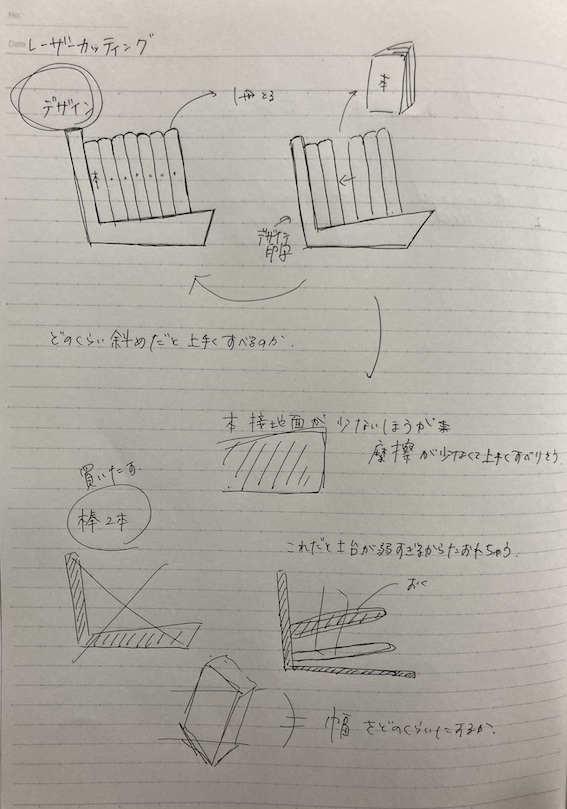 No.
Date レーザーカッティング
デザイン
1冊とる
本
本
デザイン
印字
どのくらい斜めだと上手くすべるのか。
本 接地面が少ないほうが楽
摩擦が少なくて上手くすべりそう。
買いたす。
棒2本
これだと土台が弱すぎるからたおれちゃう。
おく
幅をどのくらいにするか。